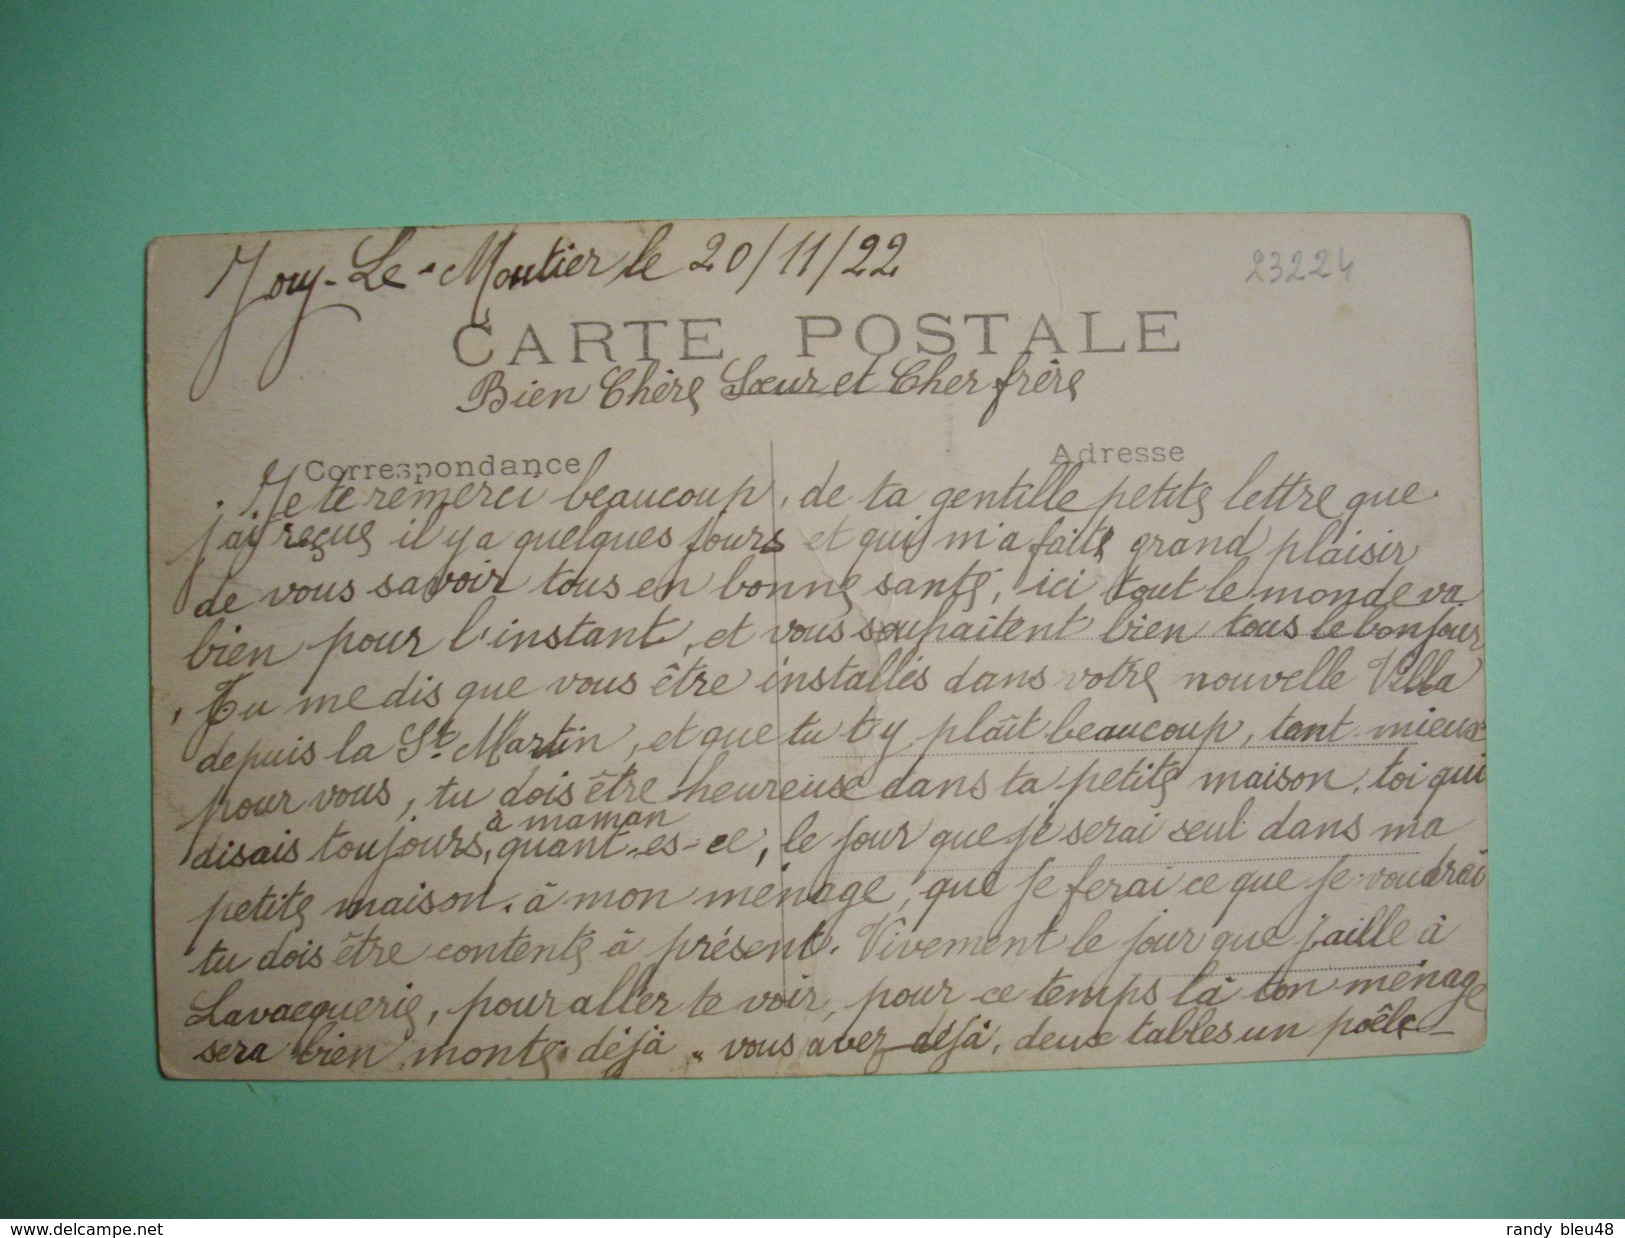 Jouy-Le-Moutier le 20/11/22
23224
CARTE POSTALE
Bien Chère Sœur et Cher frère
Correspondance
Adresse
Je te remerci beaucoup, de ta gentille petite lettre que
j'ai reçue il y a quelques jours et qui m'a faite grand plaisir
de vous savoir tous en bonne santé, ici tout le monde va
bien pour l'instant, et vous souhaitent bien tous le bonjour
Tu me dis que vous être installés dans votre nouvelle Villa
depuis la St Martin, et que tu t'y plaît beaucoup, tant mieux
pour vous, tu dois être heureuse dans ta petite maison, toi qui
à maman
disais toujours, quant-es-ce, le jour que je serai seul dans ma
petite maison. à mon ménage, que je ferai ce que je voudrai
tu dois être contente à présent. Vivement le jour que j'aille à
Lavacquerie, pour aller te voir, pour ce temps là ton ménage
sera bien monté déjà, vous avez déjà, deux tables un poêle
www.delcampe.net
randy_bleu48